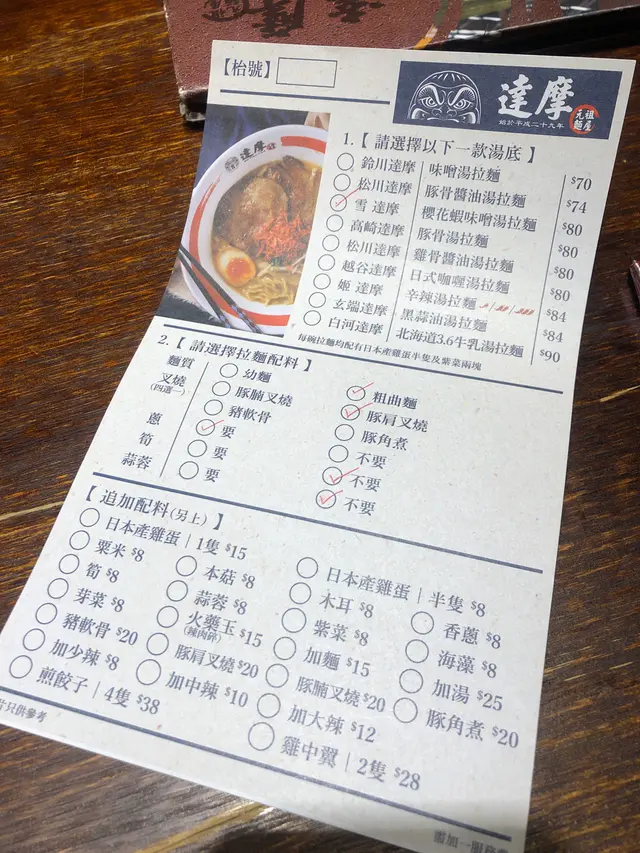 達摩
【枱號】
達摩
始於平成二十九年
元祖麵屋
達摩
1.【 請選擇以下一款湯底 】
鈴川達摩 味噌湯拉麵 $70
松川達摩 豚骨醬油湯拉麵 $74
雪 達摩 櫻花蝦味噌湯拉麵 $80
高崎達摩 豚骨湯拉麵 $80
松川達摩 雞骨醬油湯拉麵 $80
越谷達摩 日式咖喱湯拉麵 $80
姬 達摩 辛辣湯拉麵 $84
玄端達摩 黑蒜油湯拉麵 $84
白河達摩 北海道3.6牛乳湯拉麵 $90
每碗拉麵均配有日本產雞蛋半隻及紫菜兩塊
2.【 請選擇拉麵配料 】
麵質 幼麵 粗曲麵
叉燒 豚腩叉燒 豚肩叉燒
(四選一) 豬軟骨 豚角煮
蔥 要 不要
筍 要 不要
蒜蓉 要 不要
【 追加配料(另上) 】
日本產雞蛋 | 1隻 $15 日本產雞蛋 | 半隻 $8
粟米 $8 本菇 $8 木耳 $8 香蔥 $8
筍 $8 蒜蓉 $8 紫菜 $8 海藻 $8
芽菜 $8 火藥玉 $15 加麵 $15 加湯 $25
(辣肉碎)
豬軟骨 $20 豚肩叉燒 $20 豚腩叉燒 $20 豚角煮 $20
加少辣 $8 加中辣 $10 加大辣 $12
煎餃子 | 4隻 $38 雞中翼 | 2隻 $28
片只供參考
需加一服務費